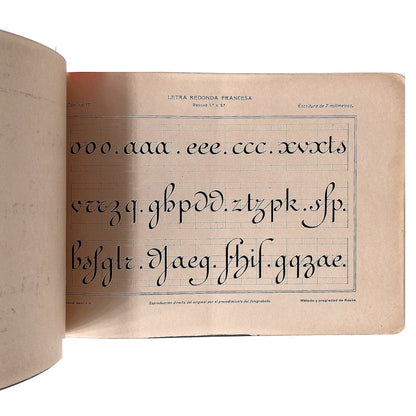 LETRA REDONDA FRANCESA
Escritura de 7 milímetros.
ooo.aaa.eee.ccc.xvxts
vrrzq.ghpdd.ztzpk.sſp.
bsſglr.daeg.ſhiſ.gqzae.
Reproducción directa del original por el procedimiento del fotograbado
Método y propiedad de